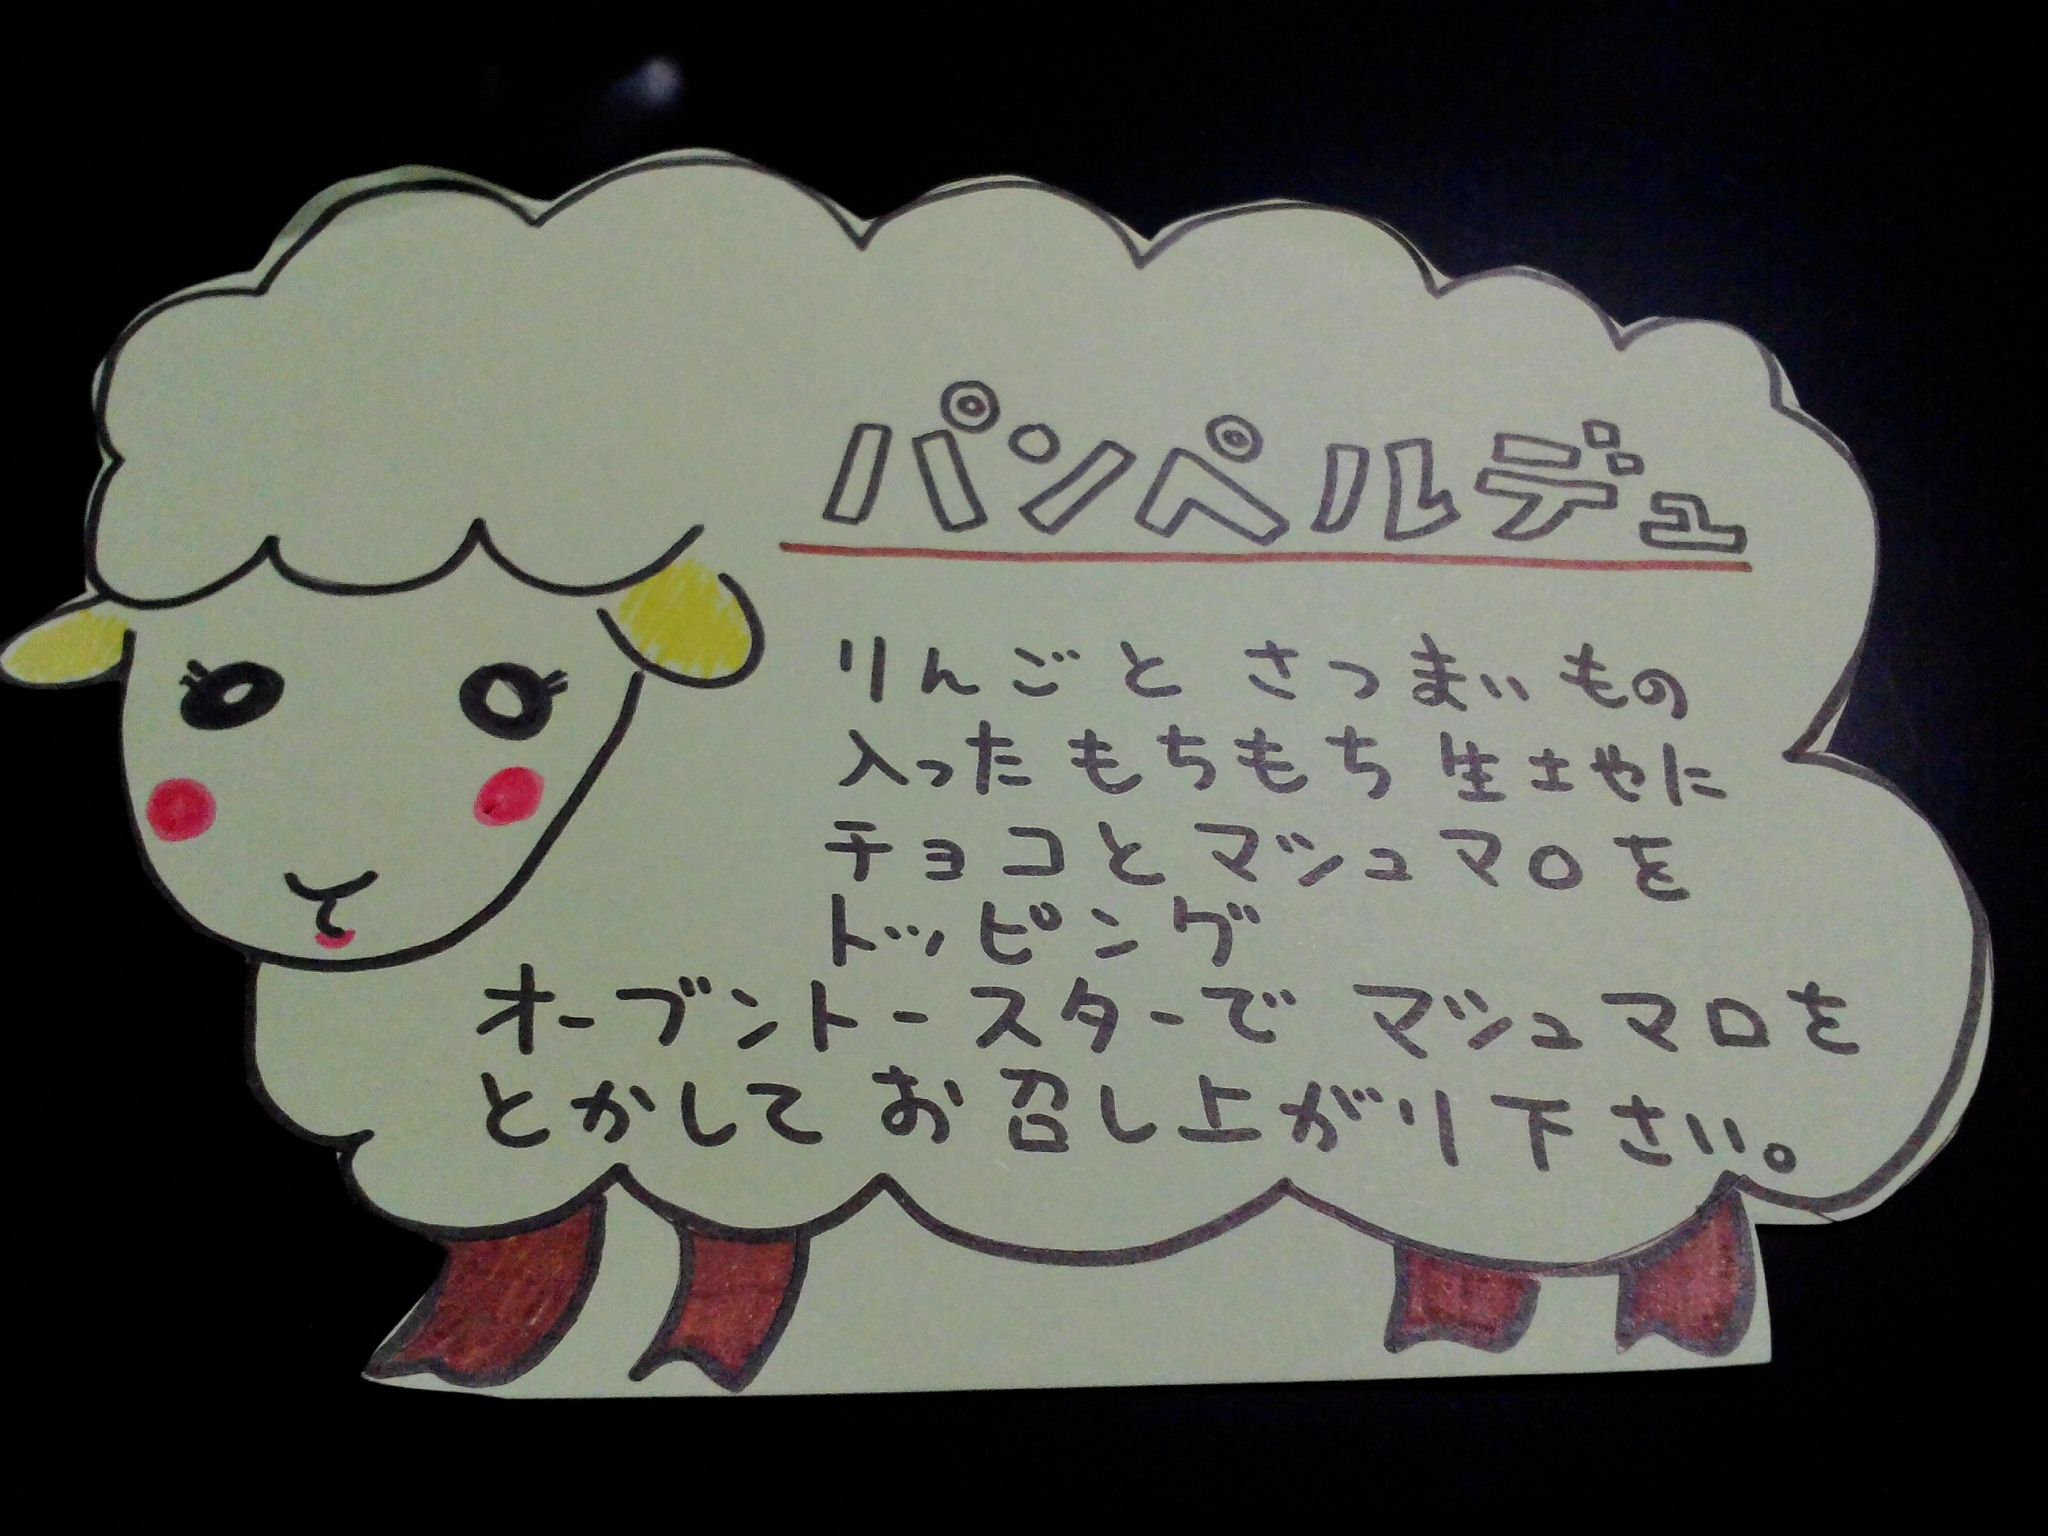 パンペルデュ
りんごと さつまいもの
入った もちもち 生土やに
チョコとマシュマロを
トッピング
オーブントースターで マシュマロを
とかして お召し上がり下さい。